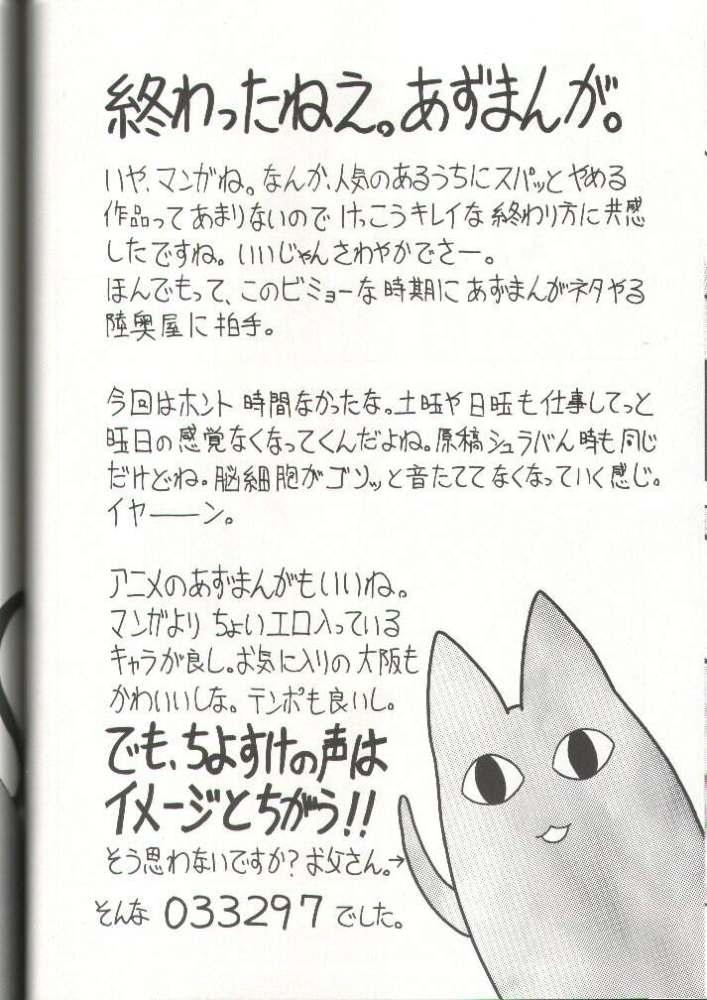 終わったねえ。あずまんが。
いや、マンガね。なんか、人気のあるうちにスパッとやめる
作品ってあまりないので けっこうキレイな終わり方に共感
したですね。いいじゃんさわやかでさー。
ほんでもって、このビミョーな時期にあずまんがネタやる
陸奥屋に拍手。
今回はホント 時間なかったな。土旺や日旺も仕事してっと
旺日の感覚なくなってくんだよね。原稿シュラバん時も同じ
だけどね。脳細胞がゴソッと音たててなくなっていく感じ。
イヤーーン。
アニメのあずまんがもいいね。
マンガより ちょいエロ入っている
キャラが良し。お気に入りの大阪も
かわいいしな。テンポも良いし。
でも、ちよすけの声は
イメージとちがう!!
そう思わないですか?お父さん。→
そんな 033297 でした。